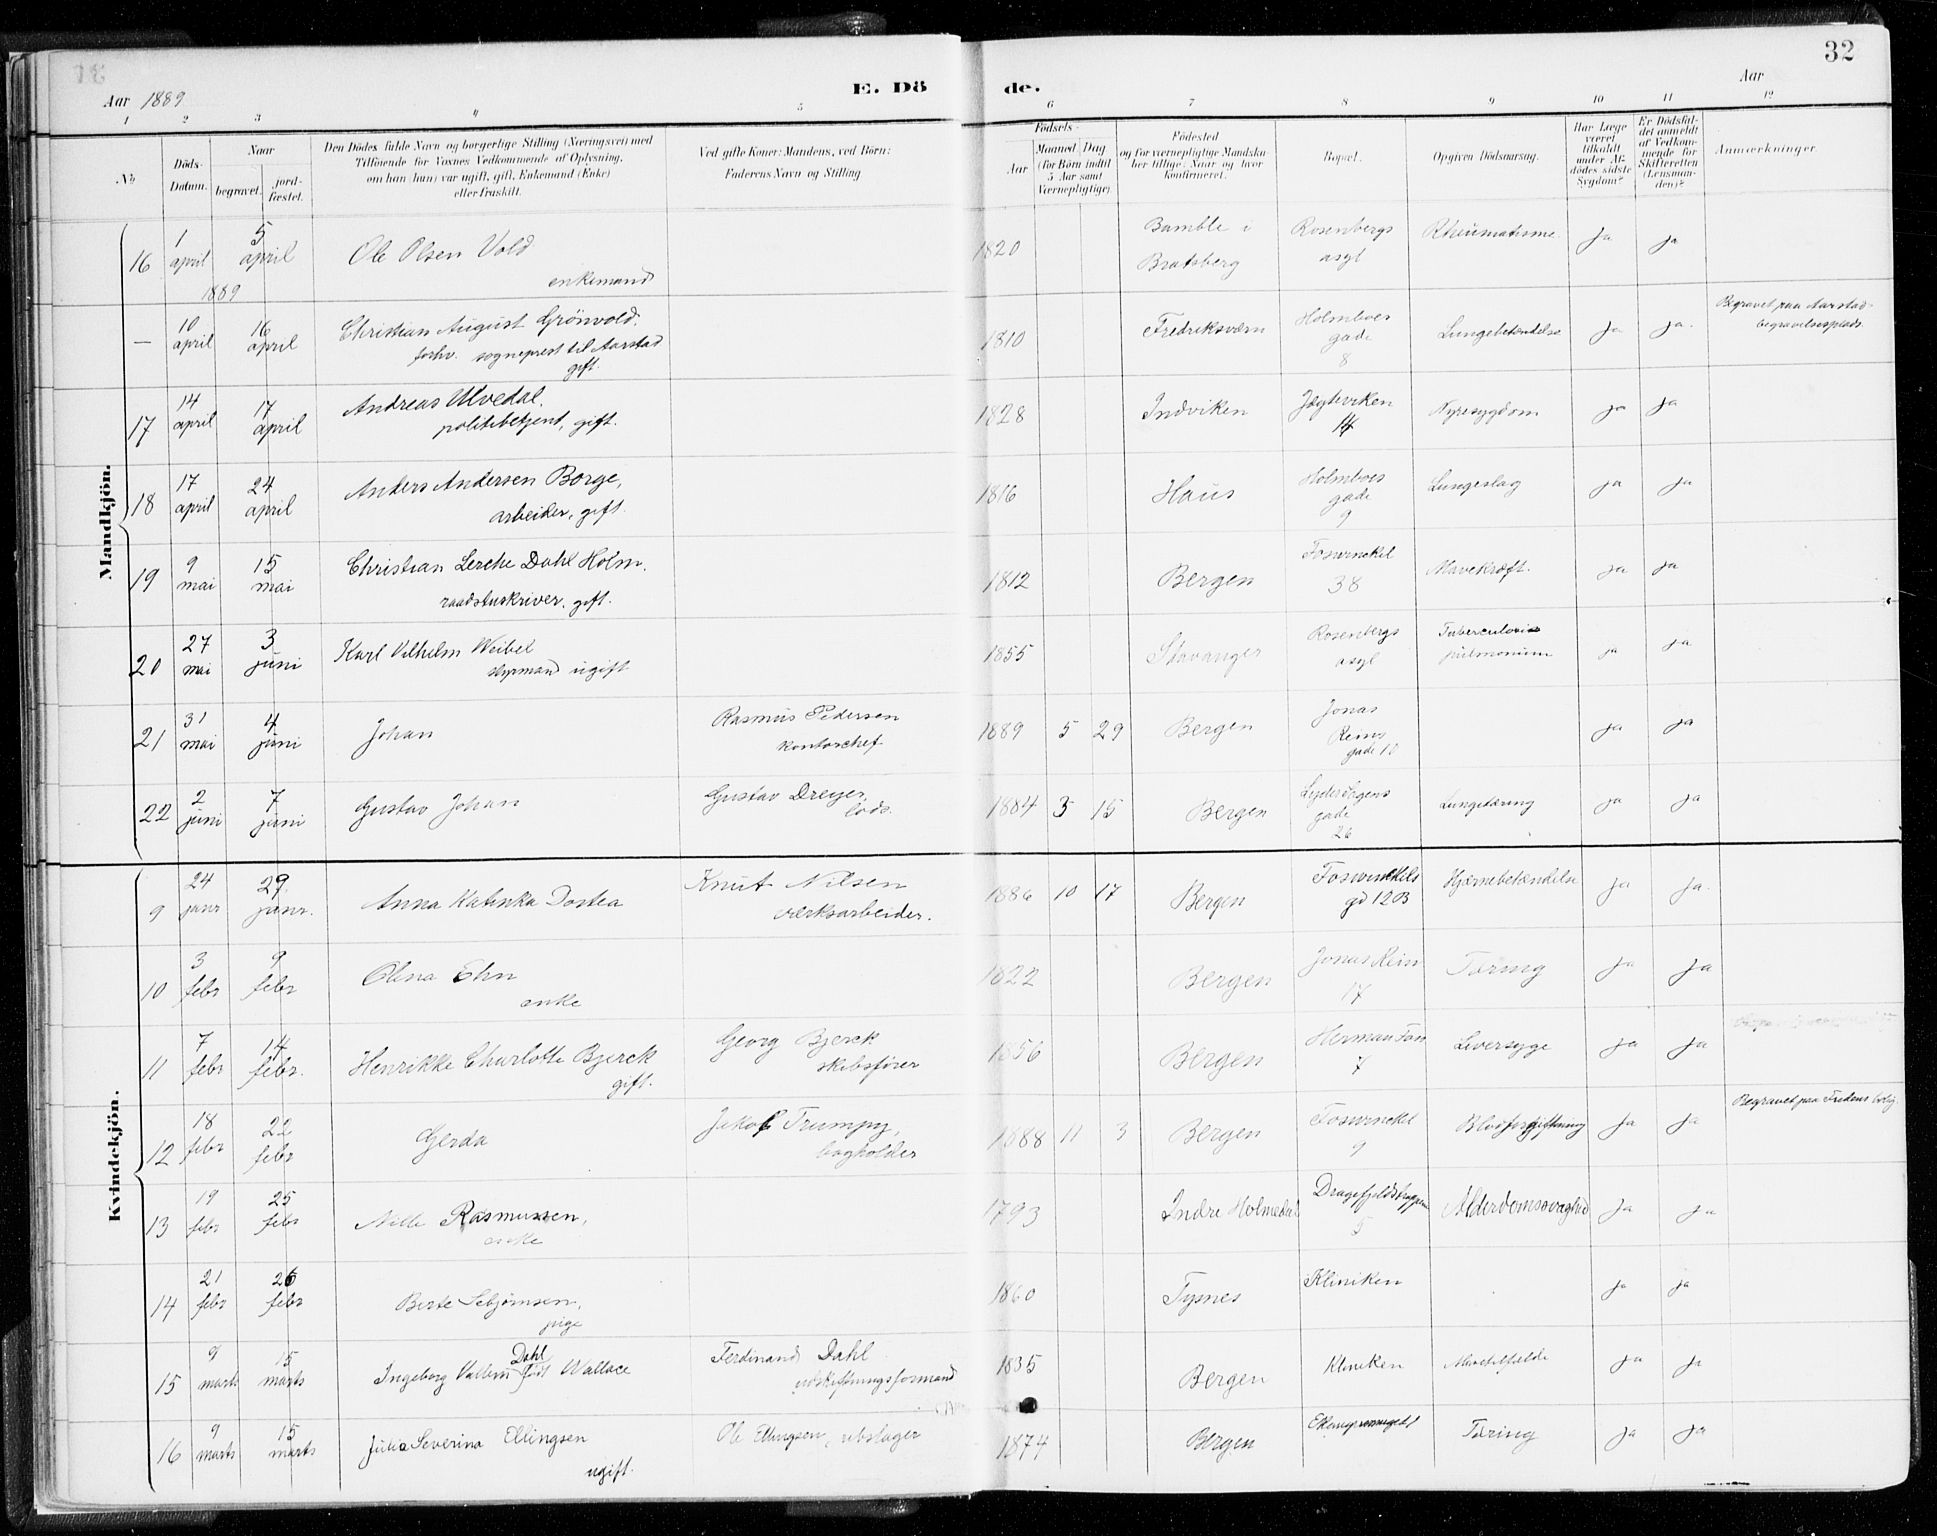 32
Aar 1889
E. Dö de.
Aar
1 2 3 4 5 6 7 8 9 10 11 12
№
Döds-Datum.
Naar
begravet.
jordfæstet.
Den Dödes fulde Navn og borgerlige Stilling (Næringsvei) med
Tilföiende for Voxnes Vedkommende af Oplysning,
om han (hun) var ugift, gift, Enkemand (Enke)
eller fraskilt.
Ved gifte Koner: Mandens, ved Börn:
Faderens Navn og Stilling
Födsels-
Aar
Maaned Dag
(for Börn indtil
5 Aar samt
Værnepligtige).
Födested
og for værnepligtige Mandskaber
tillige: Naar og hvor
konfirmeret.
Bopæl.
Opgiven Dödsaarsag.
Har Læge
været
tilkaldt
under Afdödes
sidste
Sygdom?
Er Dödsfaldet
anmeldt
af Vedkommende
for
Skifteretten
(Lensmanden)?
Anmærkninger.
Mandkjön.
16 1 april 5 april Ole Olsen Vold enkemand 1820 Bamble i Bratsberg Rosenbergs asyl Rheumatisme ja ja
1889
— 10 april 16 april Christian August Grönvold, forhv. sogneprest til Aarstad gift. 1810 Fredriksværn Holmboes gade 8 Lungebetændelse ja ja. Begravet paa Aarstad begravelsesplads.
17 14 april 17 april Andreas Ulvedal, politibetjent, gift. 1828 Indviken Jægteviken 14 Nyresygdom ja ja
18 17 april 24 april Anders Andersen Borge, arbeider, gift 1816 Haus Holmboes gade 9 Lungeslag ja ja
19 9 mai 15 mai Christian Lerche Dahl Holm, raadstuskriver, gift. 1812 Bergen Foswinckel 38 Mavekræft. ja ja
20 27 mai 3 juni Karl Vilhelm Weibel styrmand ugift 1855 Stavanger Rosenbergs asyl Tuberculosis pulmonum ja ja
21 31 mai 4 juni Johan Rasmus Pedersen kontorchef 1889 5 29 Bergen Jonas Reins gade 10 ja ja
22 2 juni 7 juni Gustav Johan Gustav Dreyer, lods. 1884 3 15 Bergen Lyder Sagens gade 26 Lungetæring ja ja
Kvindekjön.
9 24 janr 29 janr. Anna Katinka Dortea Knut Nilsen værksarbeider. 1886 10 17 Bergen Foswinckels gd 12B Hjernebetændelse ja ja.
10 3 febr 9 febr Olina Ehn enke 1822 Bergen Jonas Rein 17 Tæring ja ja
11 7 febr 14 febr. Henrikke Charlotte Bjerck gift. Georg Bjerck skibsfører 1856 Bergen Herman Foss 7 Leversyge ja ja
12 18 febr 22 febr Gerda Jakob Trumpy, bogholder 1888 11 3 Bergen Foswinckel 9 Blodforgiftning ja ja Begravet paa Fredens bolig
13 19 febr 25 febr Nille Rasmussen, enke 1793 Indre Holmedal Dragefjeldstrappen 5 Alderdomssvaghed ja ja
14 21 febr 26 febr Berte Sebjørnsen, pige 1860 Tysnes Kliniken ja ja
15 9 marts 15 marts Ingeborg Dahl født Wallace Ferdinand Dahl udskiftningsformand 1835 Bergen Kliniken ja ja
16 9 marts 15 marts Julia Severina Ellingsen ugift. Ole Ellingsen, ubslager 1874 Bergen Tæring ja ja